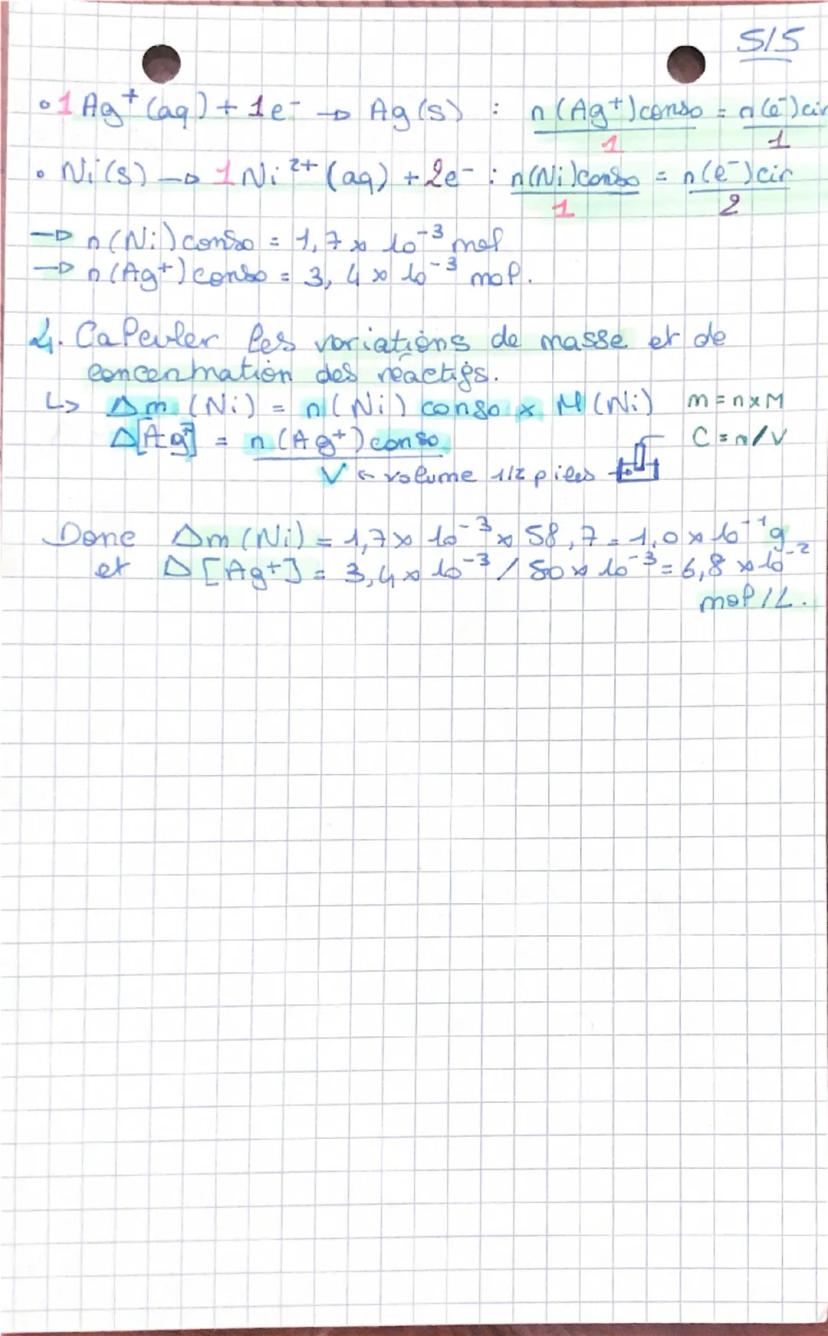 5/5
• 1 Ag⁺(aq) + 1e⁻ → Ag(s) : n(Ag⁺)conso/1 = n(e⁻)cir/1
• Ni(s) → 1 Ni²⁺(aq) + 2e⁻ : n(Ni)conso/1 = n(e⁻)cir/2
→ n(Ni)conso = 1,7 × 10⁻³ mol
→ n(Ag⁺)conso = 3,4 × 10⁻³ mol.
4. Calculer les variations de masse et de
concentration des réactifs.
↳ Δm (Ni) = n(Ni) conso × M(Ni) m = n × M
Δ[Ag⁺] = n(Ag⁺)conso C = n/V
V ← volume 1/2 piles
Donc Δm(Ni) = 1,7 × 10⁻³ × 58,7 = 1,0 × 10⁻¹ g
et Δ[Ag⁺] = 3,4 × 10⁻³ / 50 × 10⁻³ = 6,8 × 10⁻²
mol/L.